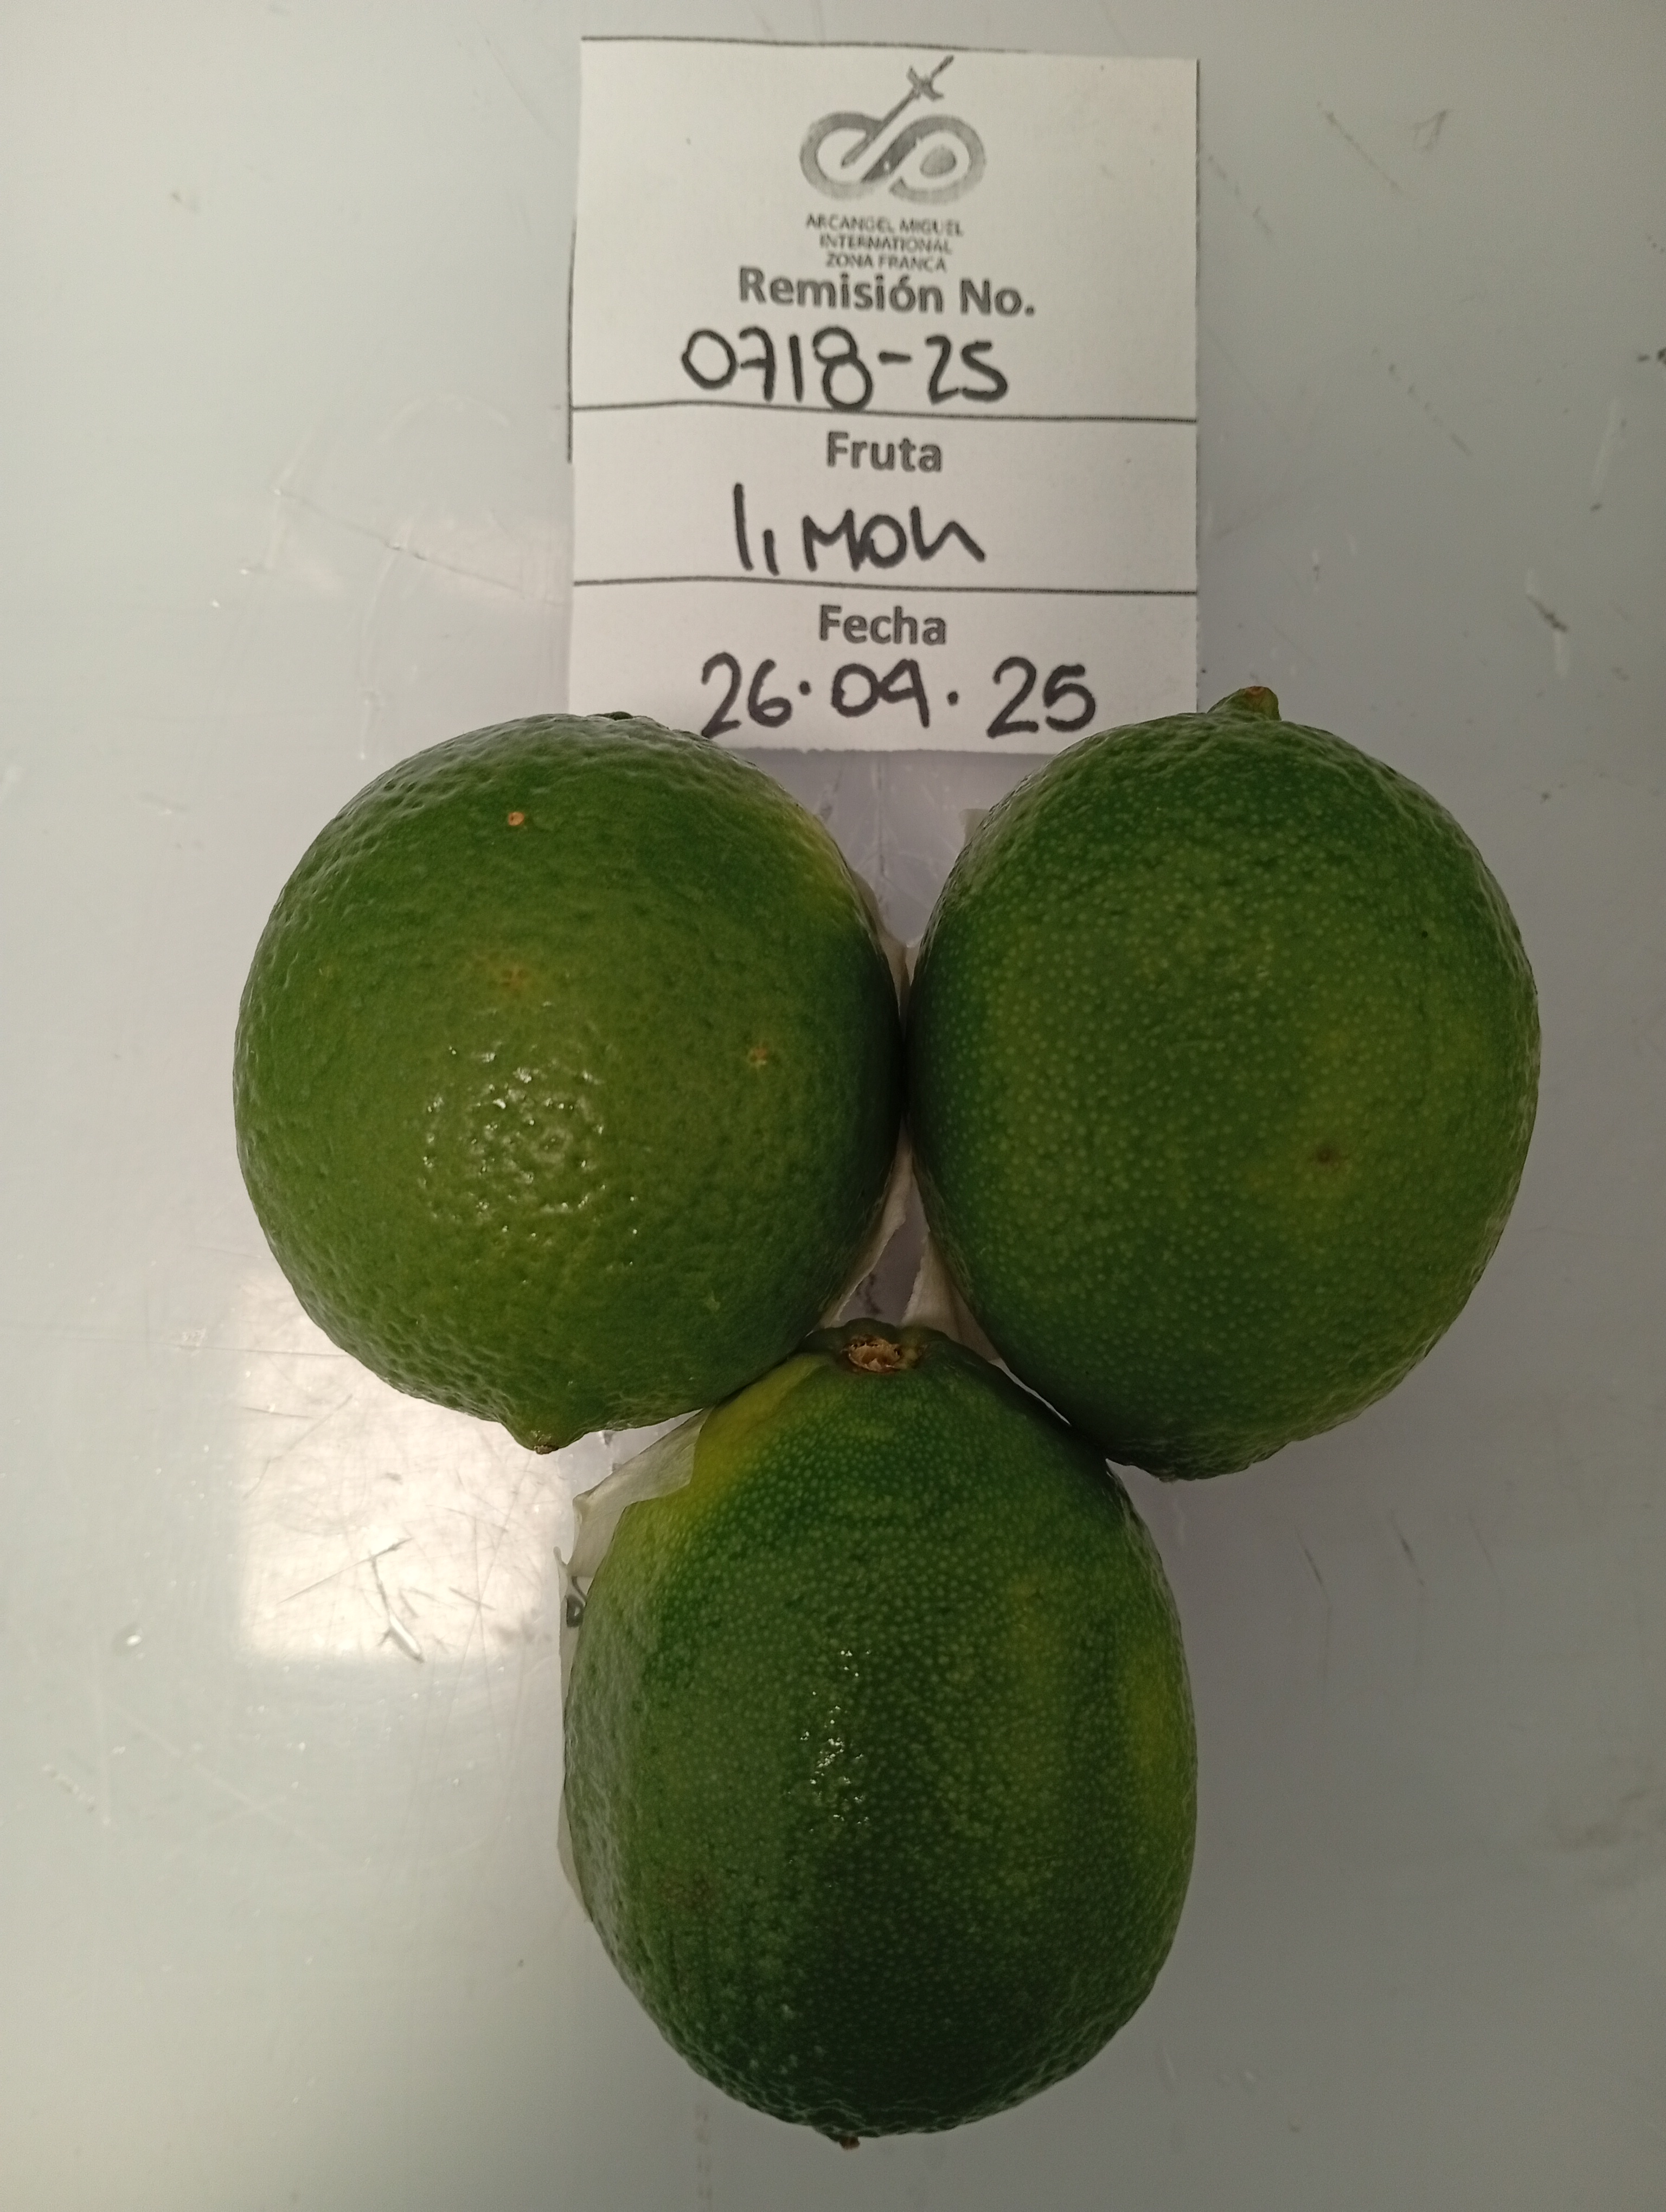 ARCANGEL MIGUEL
INTERNATIONAL
ZONA FRANCA
Remisión No.
0718-25
Fruta
limon
Fecha
26.04.25